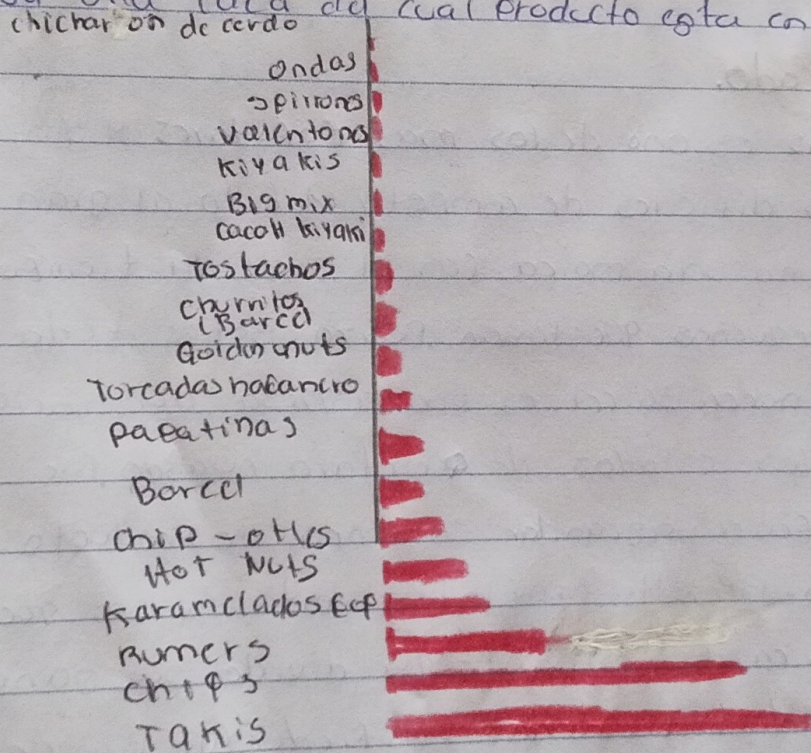 cual producto esta
chicharon de cerdo
ondas
spirrones
valentones
Kiyakis
Big mix
cacaH kiyaki
Tostachos
churritos
(Barcel
Golden nuts
Torcadas habanero
papatinas
Barcel
chip-otles
HoT NutS
Karamelados
Rumers
chips
TaKis